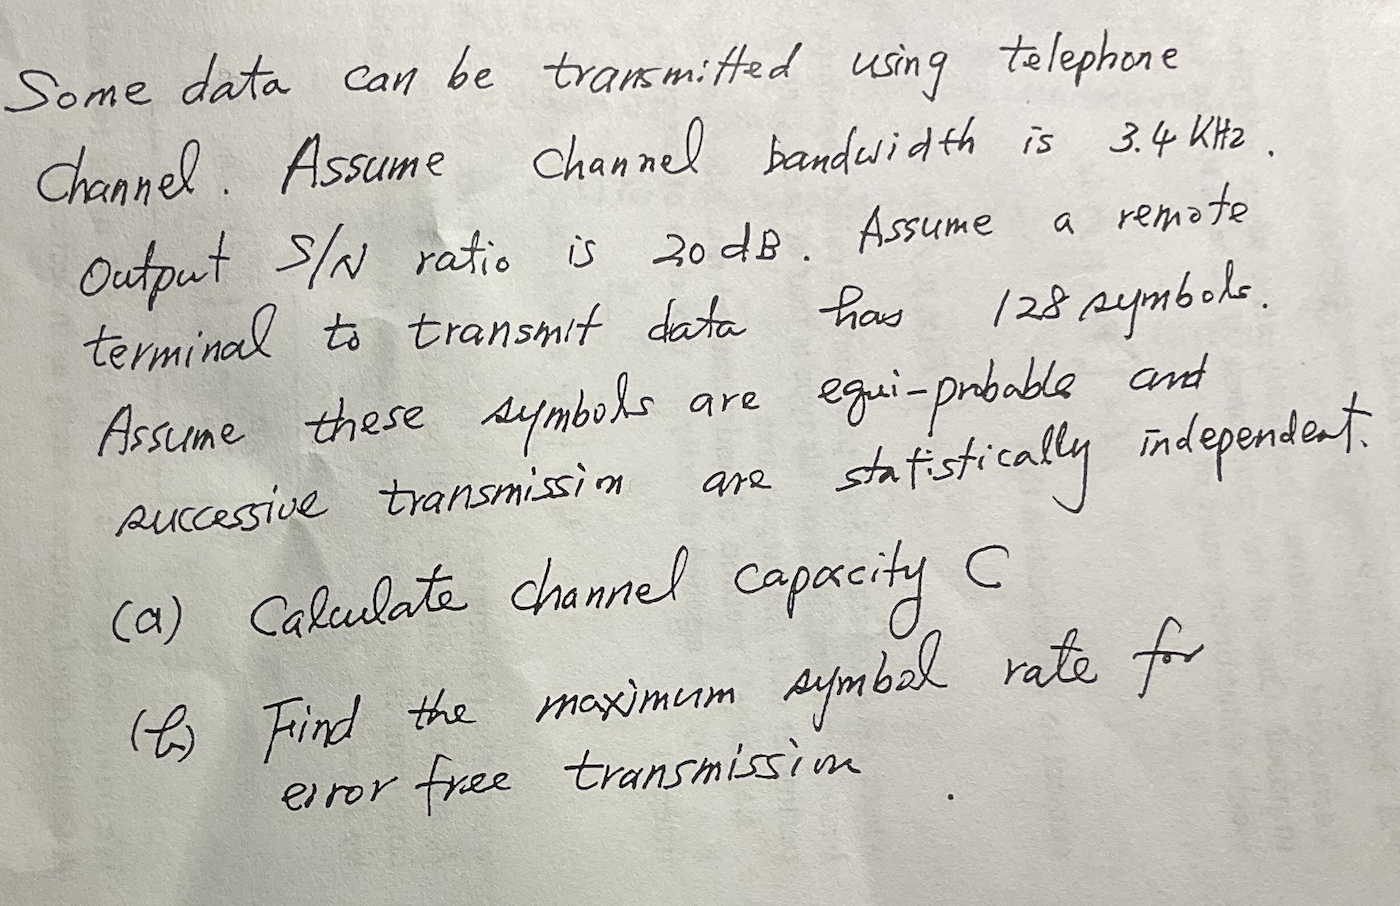 Some data can be transmitted using telephone
Channel. Assume Channel bandwidth is 3.4 KHz.
Output S/N ratio is 20 dB. Assume a remote
terminal to transmit data has 128 symbols.
Assume these symbols are equi-probable and
successive transmission are statistically independent.
(a) Calculate channel capacity C
(b) Find the maximum symbol rate for
error free transmission.